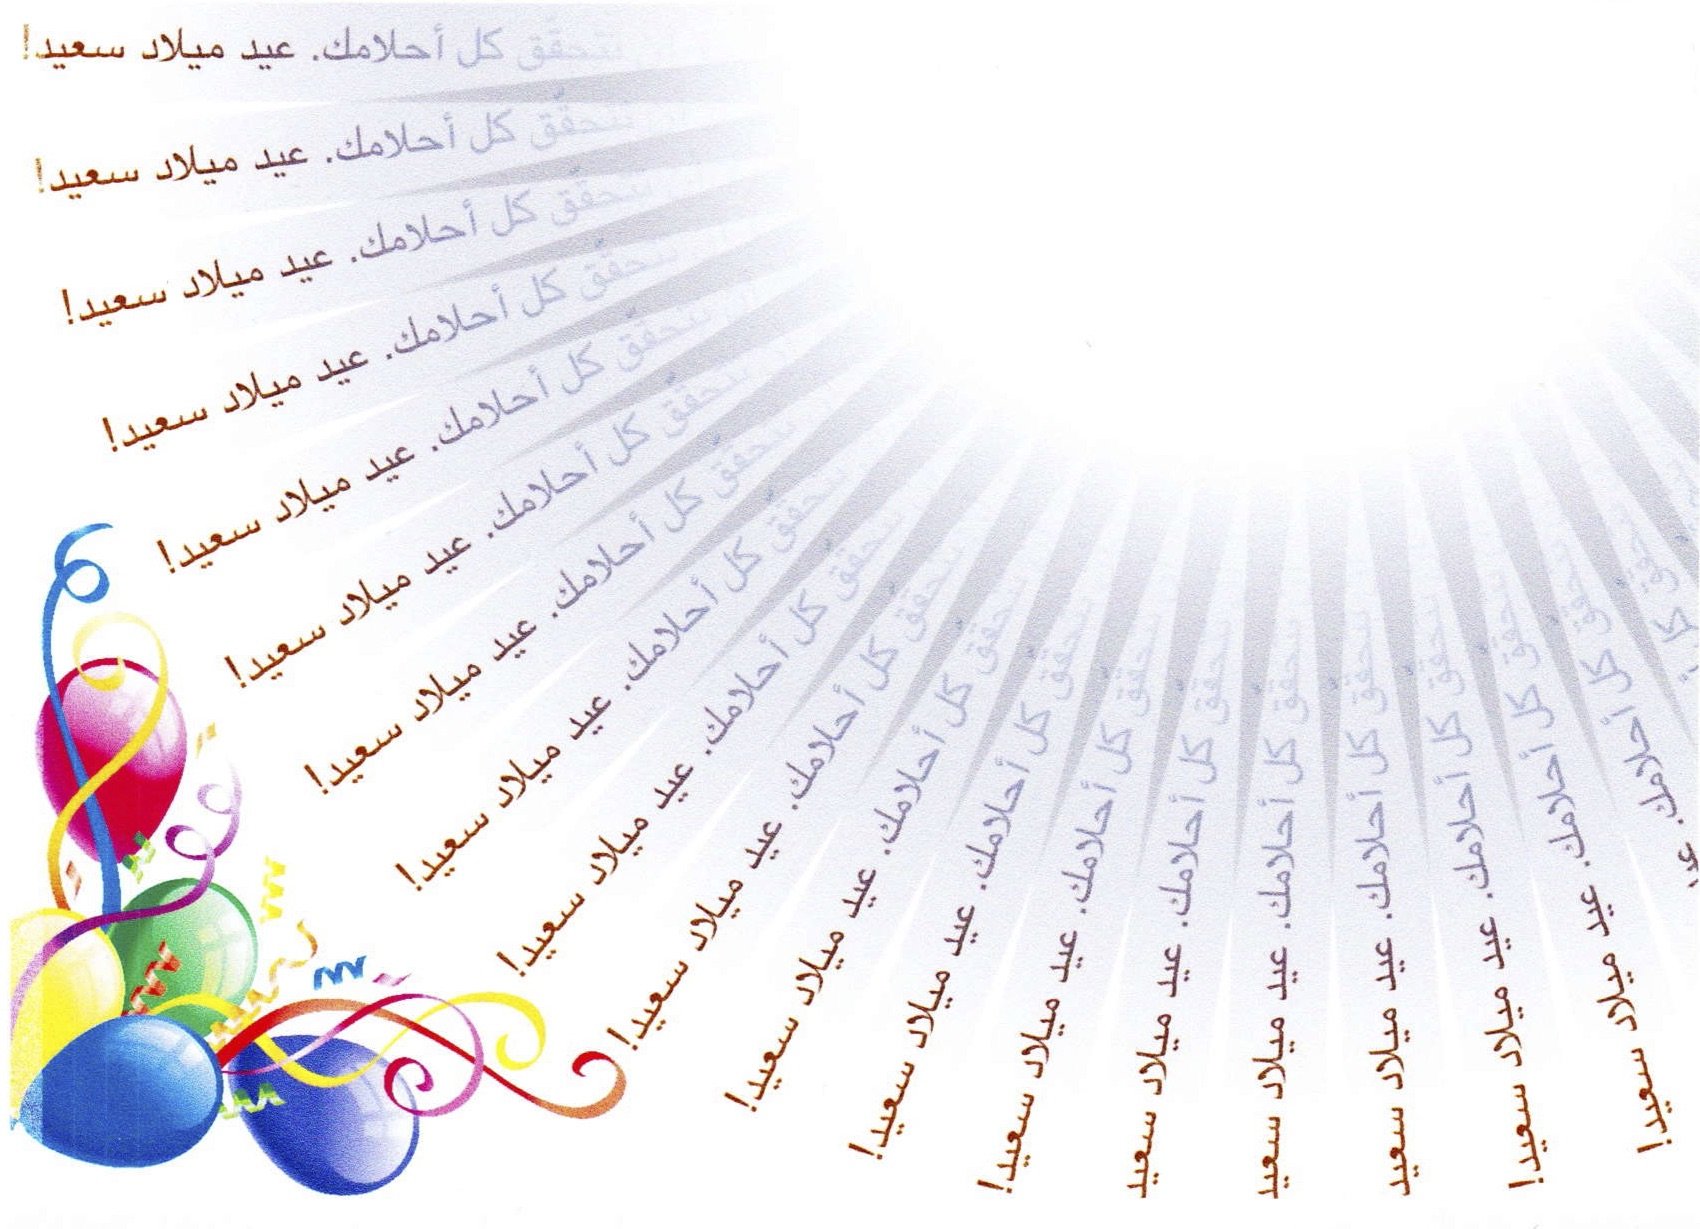 تتحقّق كل أحلامك. عيد ميلاد سعيد!
تتحقّق كل أحلامك. عيد ميلاد سعيد!
تتحقّق كل أحلامك. عيد ميلاد سعيد!
تتحقّق كل أحلامك. عيد ميلاد سعيد!
تتحقّق كل أحلامك. عيد ميلاد سعيد!
تتحقّق كل أحلامك. عيد ميلاد سعيد!
تتحقّق كل أحلامك. عيد ميلاد سعيد!
تتحقّق كل أحلامك. عيد ميلاد سعيد!
تتحقّق كل أحلامك. عيد ميلاد سعيد!
تتحقّق كل أحلامك. عيد ميلاد سعيد!
تتحقّق كل أحلامك. عيد ميلاد سعيد!
تتحقّق كل أحلامك. عيد ميلاد سعيد!
تتحقّق كل أحلامك. عيد ميلاد سعيد!
تتحقّق كل أحلامك. عيد ميلاد سعيد
تتحقّق كل أحلامك. عيد ميلاد سعيد
تتحقّق كل أحلامك. عيد ميلاد سعيد
تتحقّق كل أحلامك. عيد ميلاد سعيد!
تتحقّق كل أحلامك. عيد ميلاد سعيد!
تتحقّق كل أحلامك. عيد
تتحقّق كل